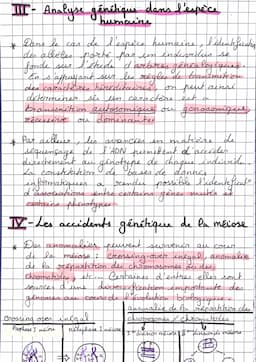 III - Analyse génétique dans l'espèce
humaine
* Dans le cas de l'espèce humaine, l'identification
des allèles porté par un individu se
fonde sur l'étude d'arbres généalogiques.
En s'appuyant sur les règles de transmission
des caractères héréditaires, on peut ainsi
déterminer si un caractère est à
transmission autosomique ou gonosomique,
récessive ou dominante.
* Par ailleurs, les avancées en matière de
séquençage de l'ADN permettent d'accéder
directement au génotype de chaque individu.
La constitution de bases de données
informatiques a rendu possible l'identification
d'associations entre certains gènes mutés et
certains phénotypes.
IV - Les accidents génétique de la méiose
* Des anomalies peuvent survenir au cours
de la méiose : crossing over inégal, anomalie
de la répartition des chromosomes ou des
chromatides. Certaines d'entre elles sont
sources d'une diversification importante des
génomes au cours de l'évolution biologique.
crossing over inégal
anomalie de la répartition des
chromosomes / chromatides
Prophase I
Métaphase I
1ère division méiose
2ème division méiose